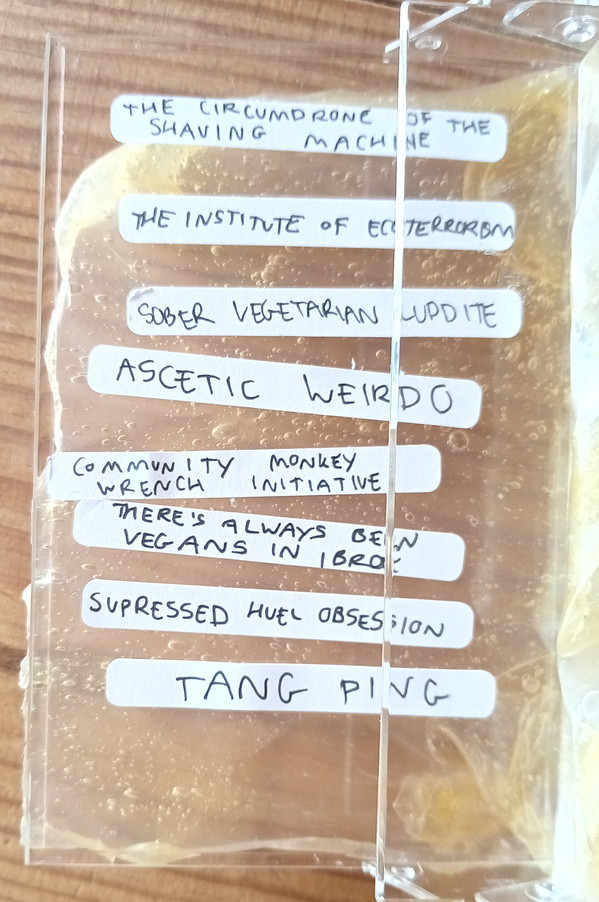 THE CIRCUMDRONE OF THE
SHAVING MACHINE
THE INSTITUTE OF ECOTERRORISM
SOBER VEGETARIAN LUDDITE
ASCETIC WEIRDO
COMMUNITY MONKEY
WRENCH INITIATIVE
THERE'S ALWAYS BEEN
VEGANS IN
SUPRESSED HUEL OBSESSION
TANG PING